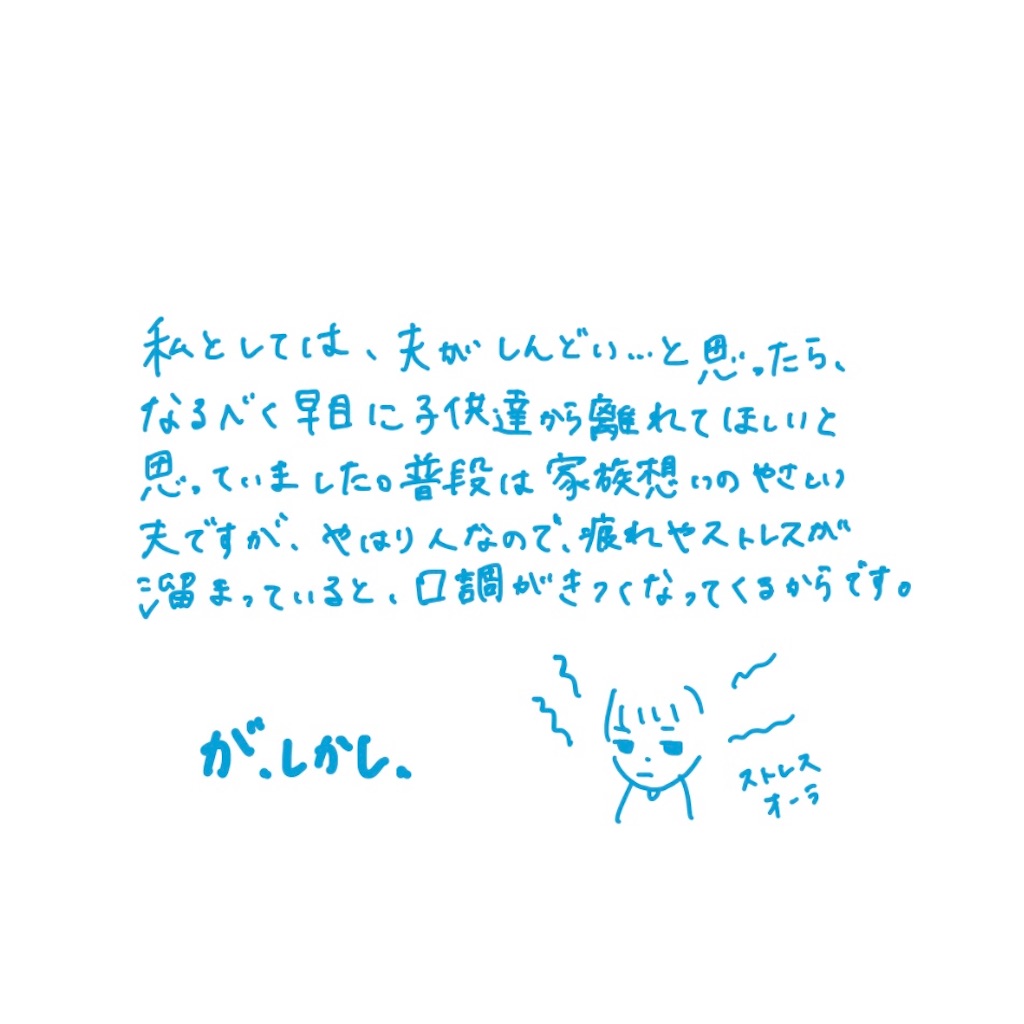 私としては、夫がしんどい…と思ったら、
なるべく早目に子供達から離れてほしいと
思っていました。普段は家族想いのやさしい
夫ですが、やはり人なので、疲れやストレスが
溜まっていると、口調がきつくなってくるからです。
が、しかし、
ストレス
オーラ